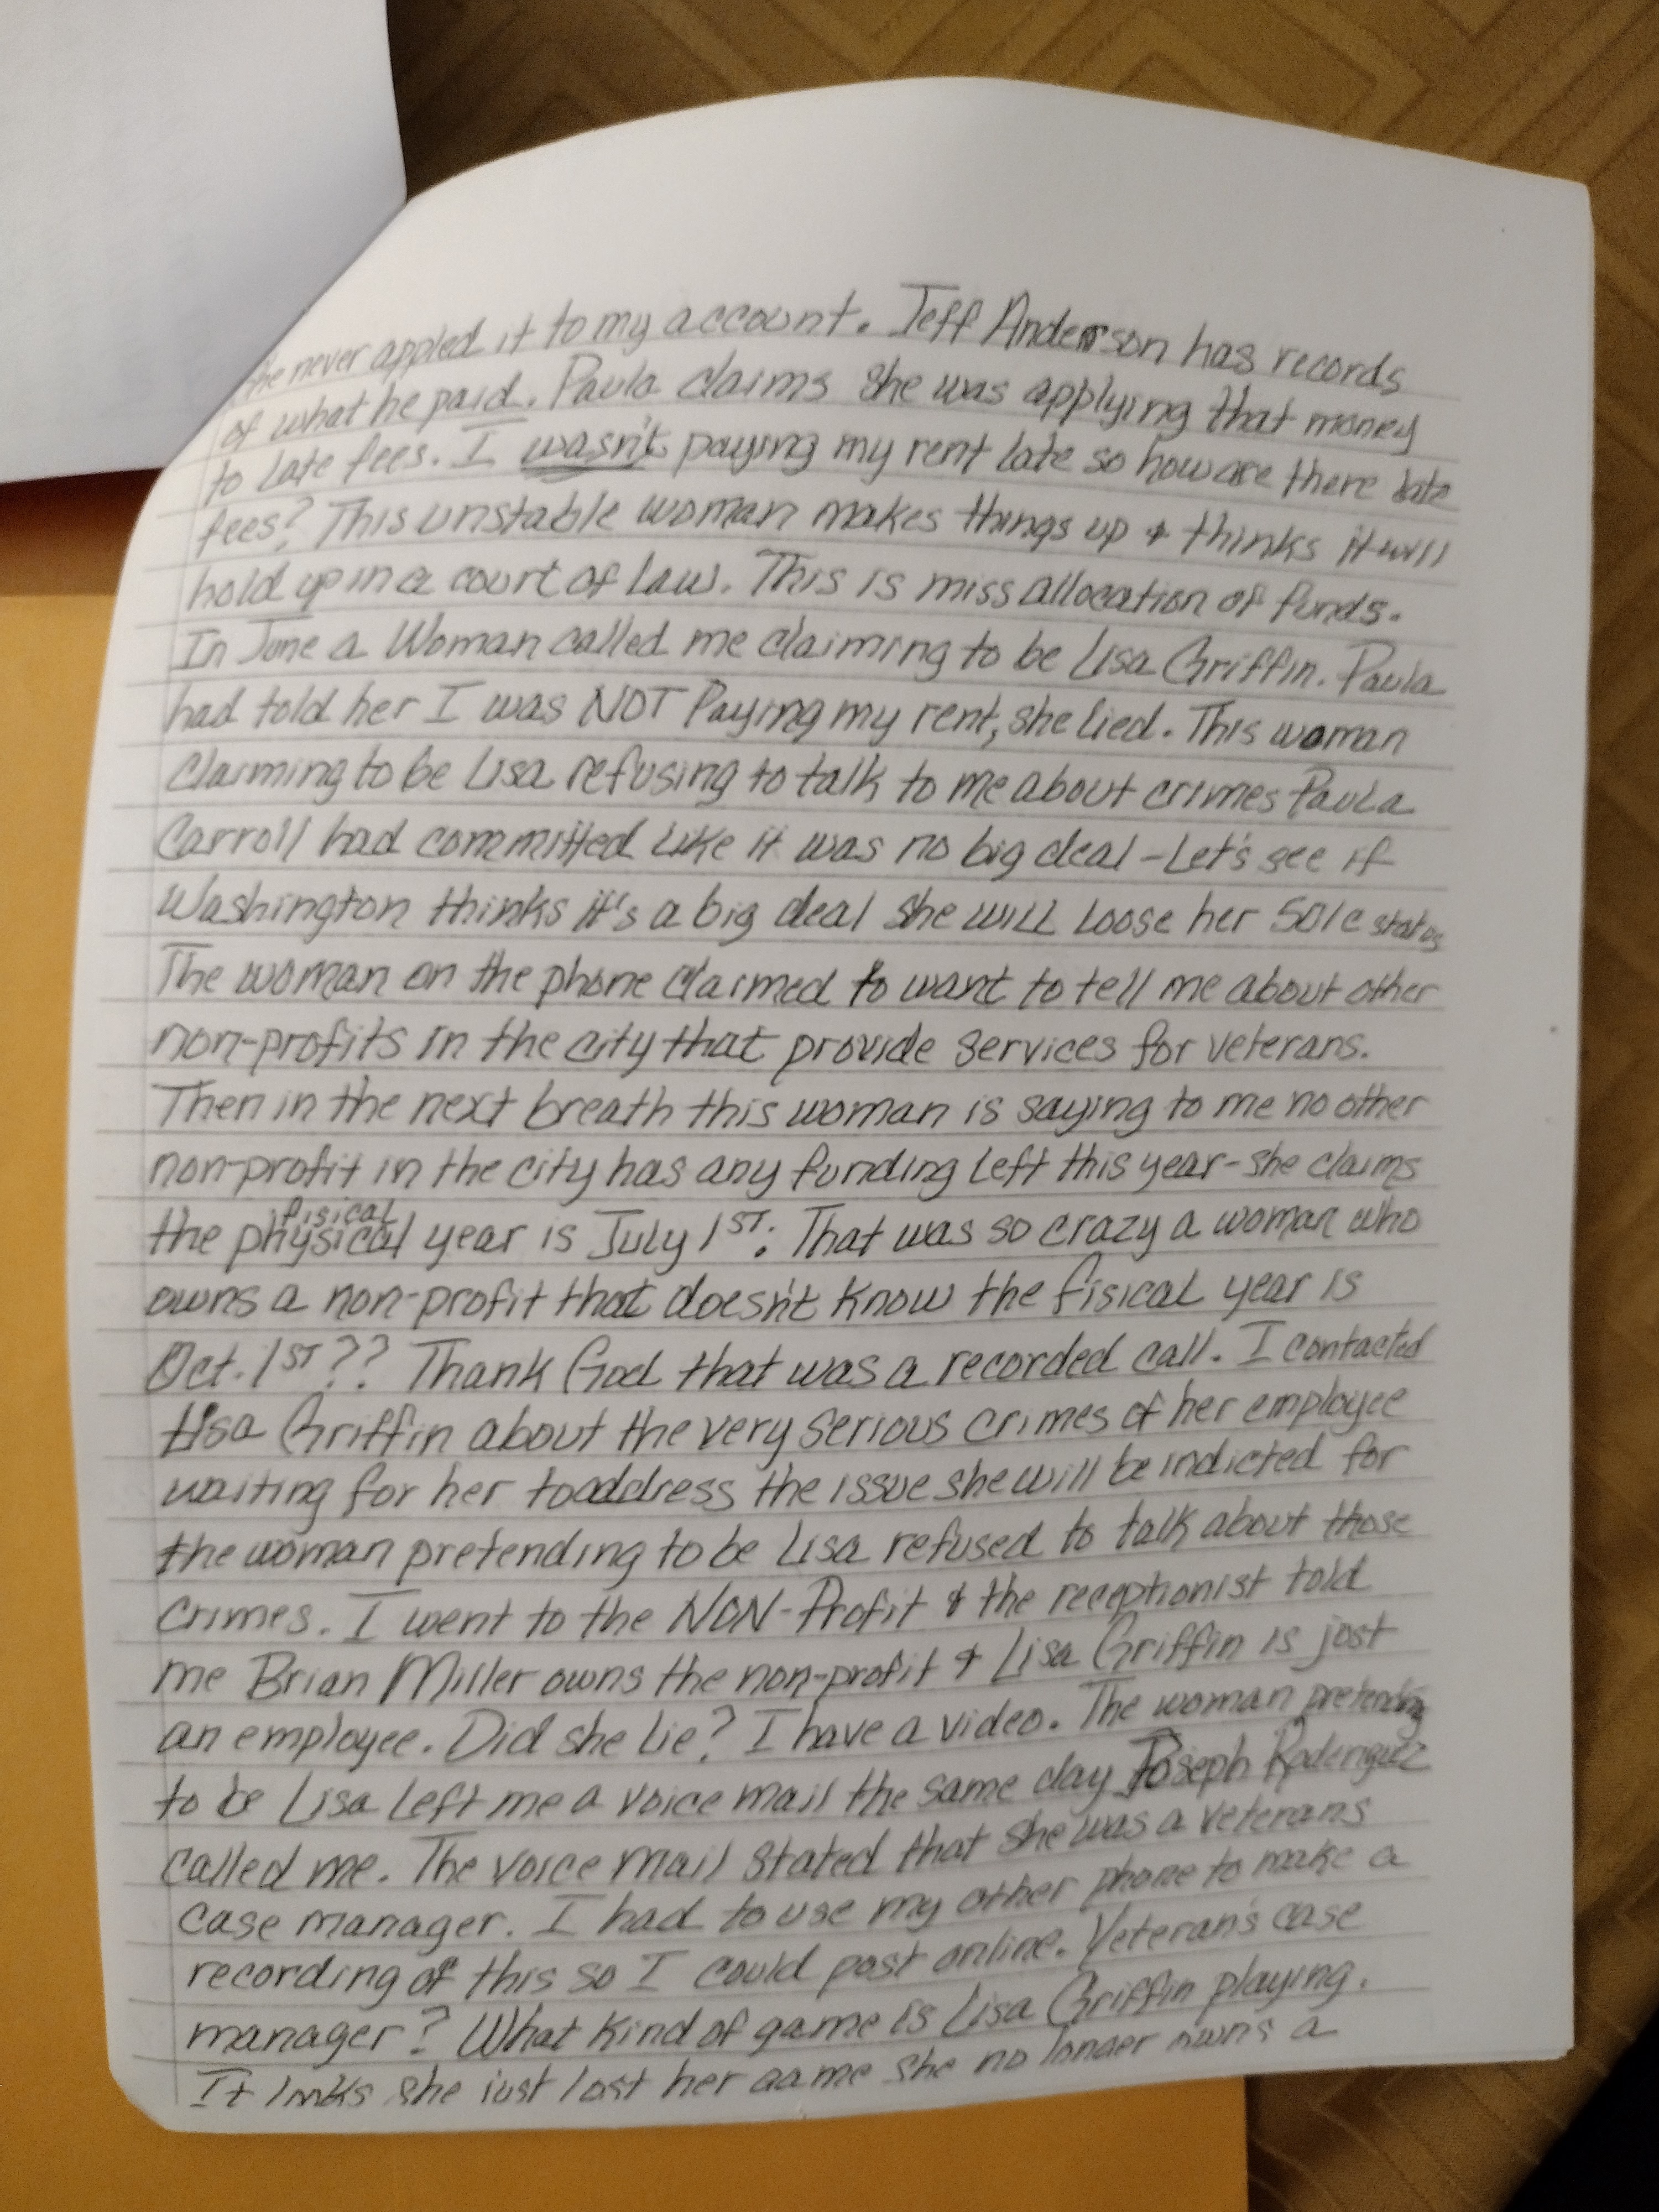 she never appled it to my account. Jeff Anderson has records
of what he paid. Paula claims she was applying that money
to late fees. I wasn't paying my rent late so how are there late
fees? This unstable woman makes things up & thinks it will
hold up in a court of law. This is miss allocation of funds.
In June a Woman called me claiming to be Lisa Griffin. Paula
had told her I was NOT Paying my rent, she lied. This woman
Claiming to be Lisa refusing to talk to me about crimes Paula
Carroll had committed like it was no big deal - Let's see if
Washington thinks it's a big deal she will loose her 501c status
The woman on the phone claimed to want to tell me about other
non-profits in the city that provide services for veterans.
Then in the next breath this woman is saying to me no other
non-profit in the city has any funding left this year - she claims
fisical
the physical year is July 1ST. That was so crazy a woman who
owns a non-profit that doesn't know the fisical year is
Oct. 1ST?? Thank God that was a recorded call. I contacted
Lisa Griffin about the very serious crimes of her employee
waiting for her to address the issue she will be indicted for
the woman pretending to be Lisa refused to talk about those
crimes. I went to the NON-Profit & the receptionist told
me Brian Miller owns the non-profit & Lisa Griffin is just
an employee. Did she lie? I have a video. The woman pretending
to be Lisa Left me a voice mail the same day Joseph Roderiguez
called me. The voice mail stated that she was a veterans
case manager. I had to use my other phone to make a
recording of this so I could post online. Veteran's case
manager? What kind of game is Lisa Griffin playing.
It looks she just lost her game she no longer owns a